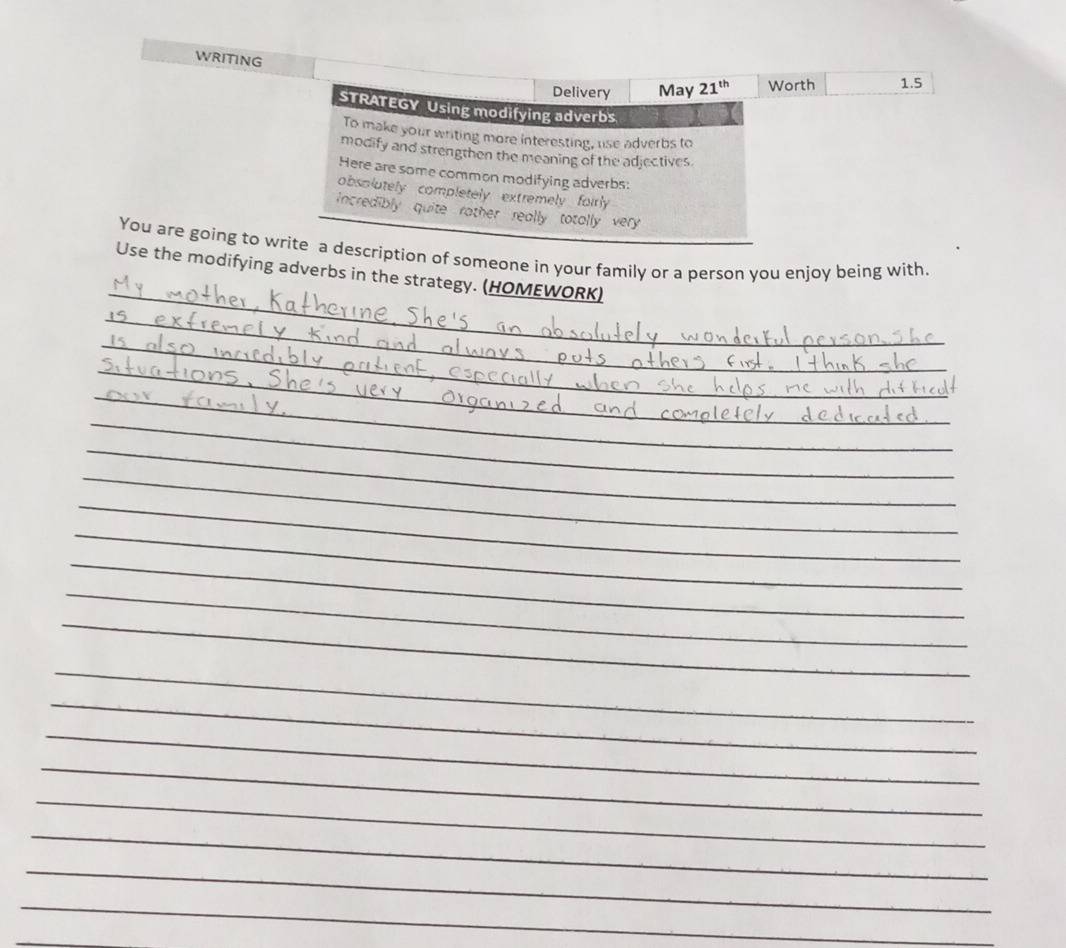 WRITING
Delivery May 21th Worth 1.5
STRATEGY Using modifying adverbs
To make your writing more interesting, use adverbs to
modify and strengthen the meaning of the adjectives.
Here are some common modifying adverbs:
absolutely completely extremely fairly
incredibly quite rather really totally very
You are going to write a description of someone in your family or a person you enjoy being with.
Use the modifying adverbs in the strategy. (HOMEWORK)
My mother, Katherine. She's an absolutely wonderful person. she
is extremely kind and always puts others first. I think she
is also incredibly patient, especially when she helps me with difficult
situations. She's very organized and completely dedicated
our family.